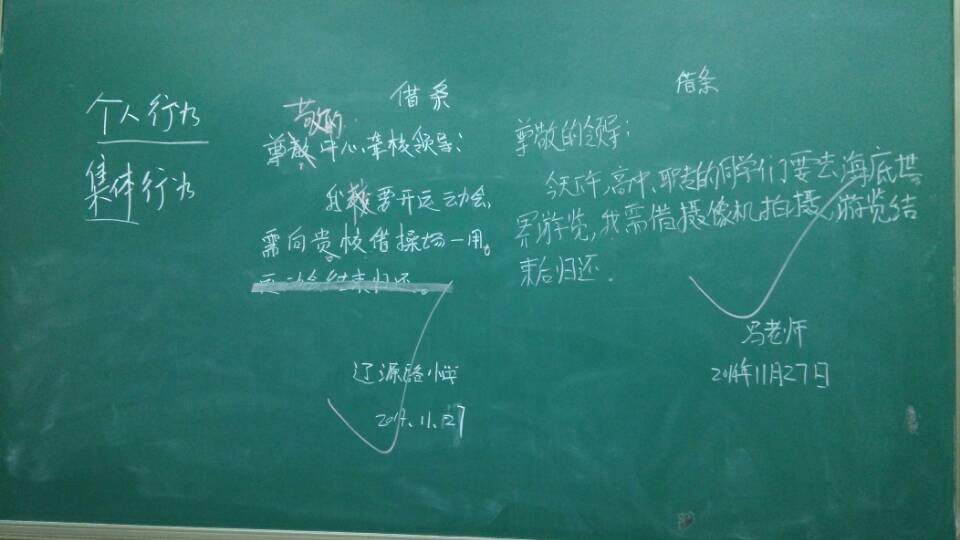 个人行为
集体行为
借条
敬的
尊敬中心学校领导:
我校要开运动会,
需向贵校借操场一用。
运动会结束归还。
辽源路小学
2014.11.27
借条
尊敬的领导:
今天下午,高中、职超的同学们要去海底世
界游览,我需借摄像机拍摄,游览结
束后归还.
冯老师
2014年11月27日